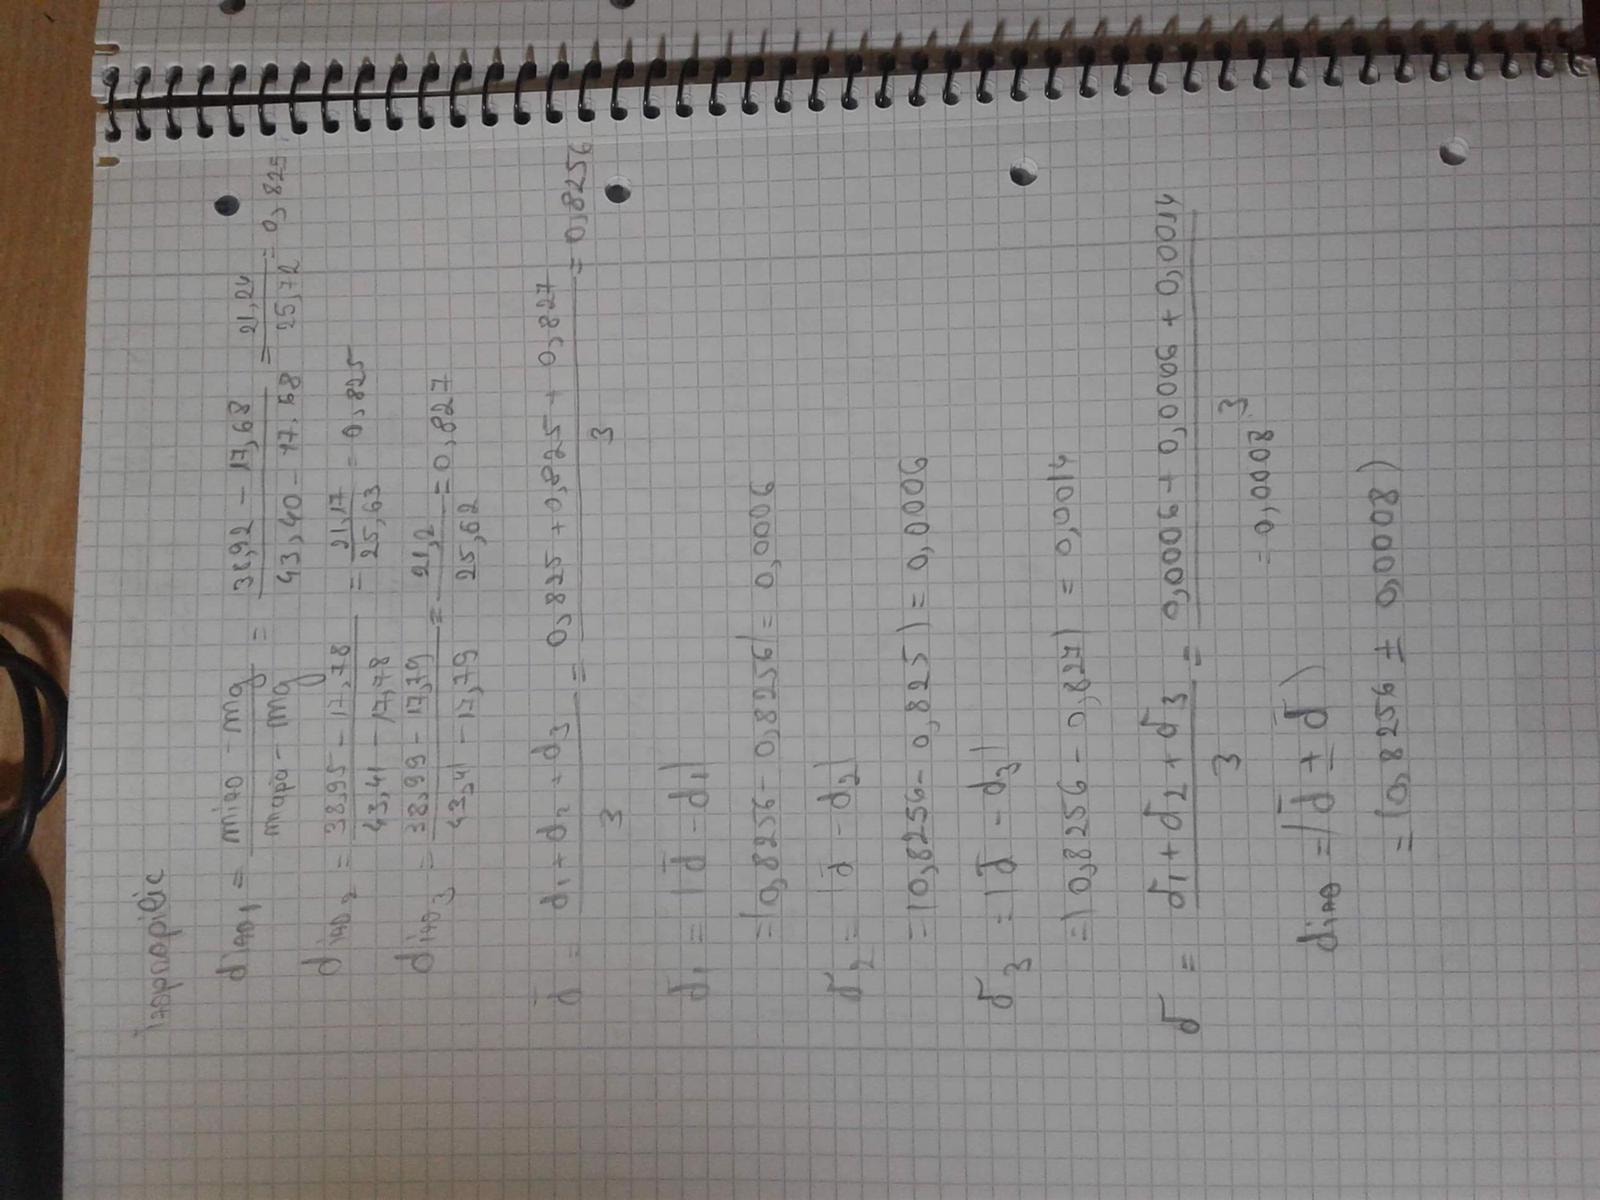 izopropilic
dizo1 = mizo - mg / mapa - mg = 38,92 - 17,68 / 43,40 - 17.68 = 21,24 / 25,72 = 0,825
dizo2 = 38,95 - 17,78 / 43,41 - 17,78 = 21,17 / 25,63 = 0,825
dizo3 = 38,99 - 17,79 / 43,41 - 17,79 = 21,2 / 25,62 = 0,827
d̄ = d1 + d2 + d3 / 3 = 0,825 + 0,825 + 0,827 / 3 = 0,8256
σ1 = |d̄ - d1|
= |0,8256 - 0,8256| = 0,0006
σ2 = |d̄ - d2|
= |0,8256 - 0,825| = 0,0006
σ3 = |d̄ - d3|
= |0,8256 - 0,827| = 0,0014
σ = σ1 + σ2 + σ3 / 3 = 0,0006 + 0,0006 + 0,0014 / 3
= 0,0008
dizo = (d̄ ± σ̄)
= (0,8256 ± 0,0008)